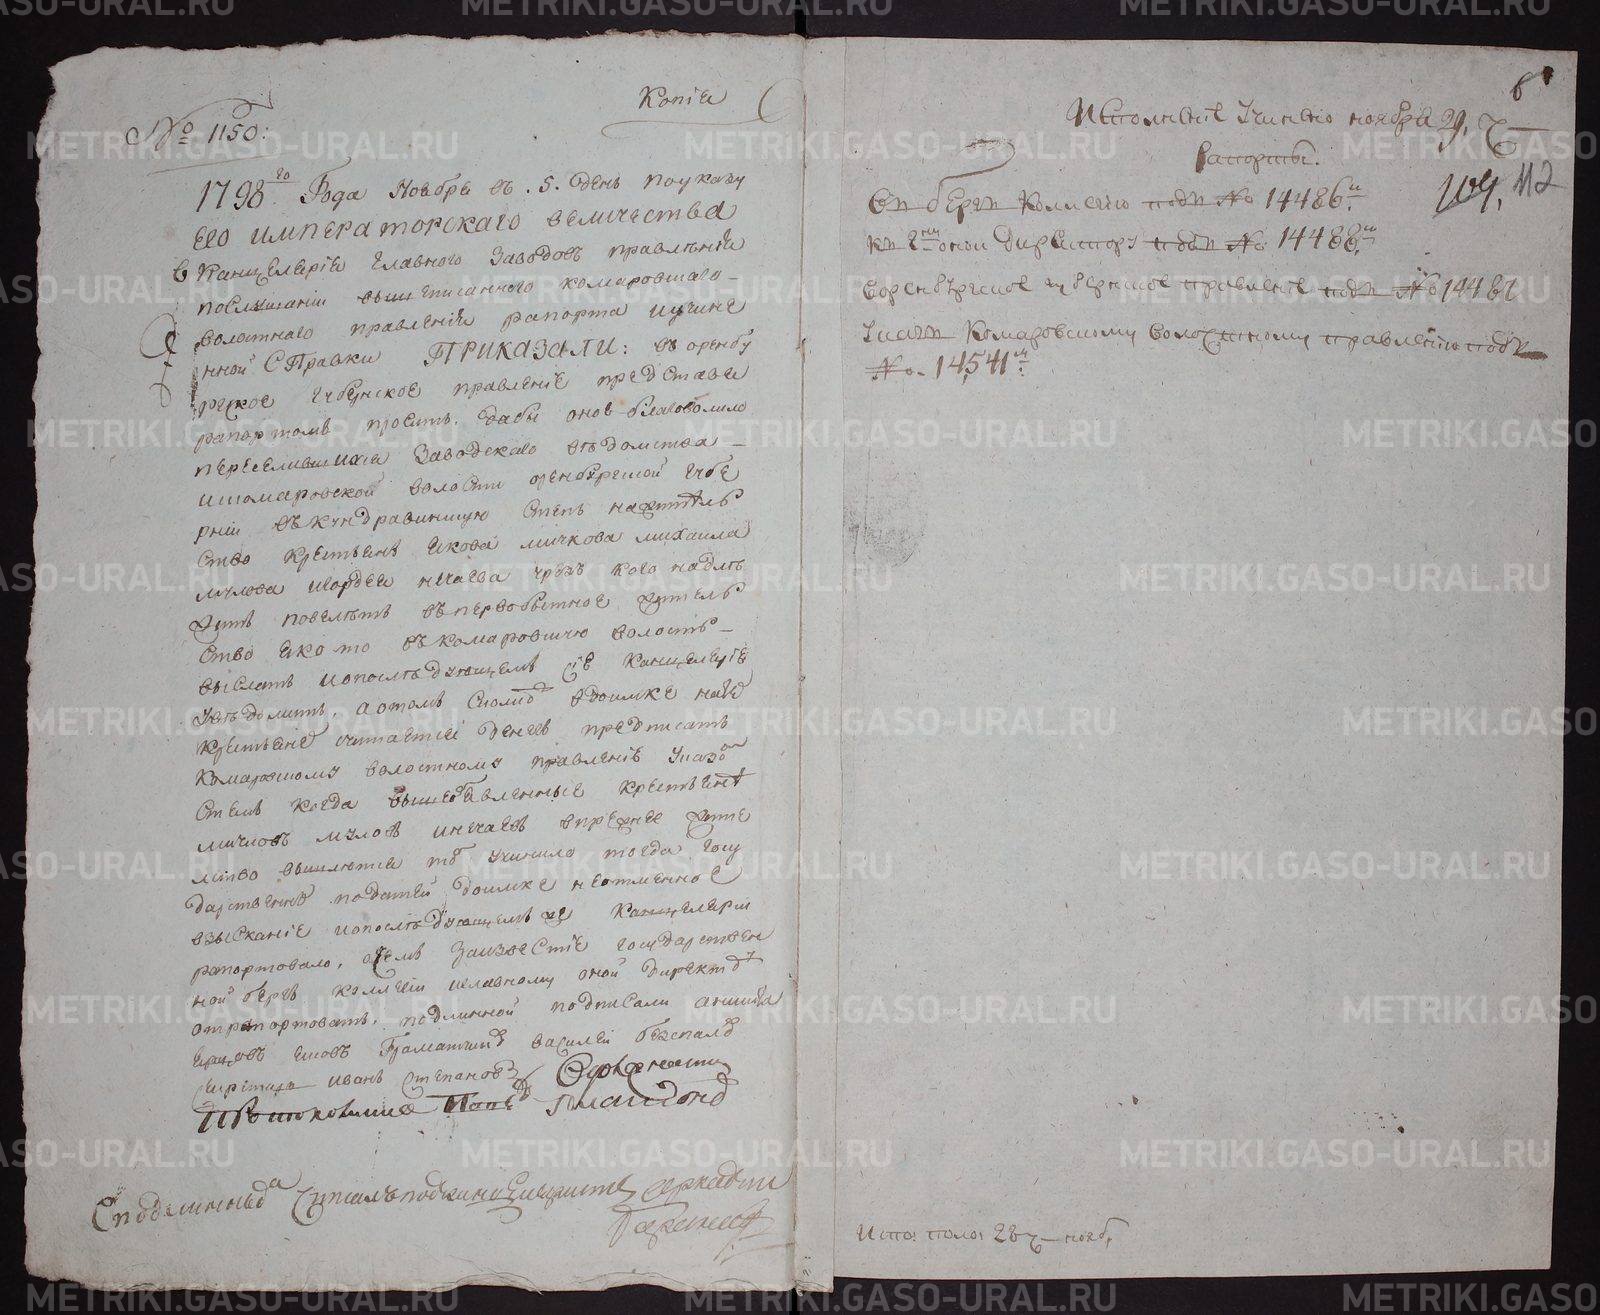 Копiя
№ 1150:
1798го Года Ноября въ .5. день по указу
ЕГО ИМПЕРАТОРСКАГО ВЕЛИЧЕСТВА
в Канцелярiи главного заводовъ правленiя
послушанiи вышеписанного комаровского
волостнаго правленiя рапорта и учине
нной справки ПРИКАЗАЛИ: въ оренбу
ргское губернское правленiе представя
рапортомъ просить, дабы оное благоволило
переселившихся заводскаго ведомства
комаровской волости оренбургской губе
рнiи въ кундравинскую степь на житель
ство крестьянъ якова мичкова михаила
и гордея нечаева чрезъ кого надле
житъ повелеть въ первобытное житель
ство яко то въ комаровскую волость
выслать и о последующемъ сiе канцелярiю
уведомить, а о томъ сколко в доимке на
крестьяне считается денегъ предписать
комаровскому волостному правленiю указом
стемъ когда вышеобъявленные крестьяне
мичковъ и нечаевъ в прежнее жите
лство вышлются то учинило тогда госу
дарственнъ податей доимке неотменное
взысканiе и о последующемъ канцелярiи
рапортовало, о чемъ за известiе государствен
ной бергъ коллегiи и главному оной директору
отрапортовать, подлинной подписали аникита
ярцовъ василей
секретарь иванъ степановъ
Сподлиннымъ читалъ подканцеляристъ аркадий
6
Исполненiе учинено ноября 29,
рапорты.
109, 112
въ бергъ коллегию подъ № 14486м
оной директору подъ № 14488м
в оренбургское губернское правленiе подъ № 14487
указъ комаровскому волостному правлению подъ
№ 14541м